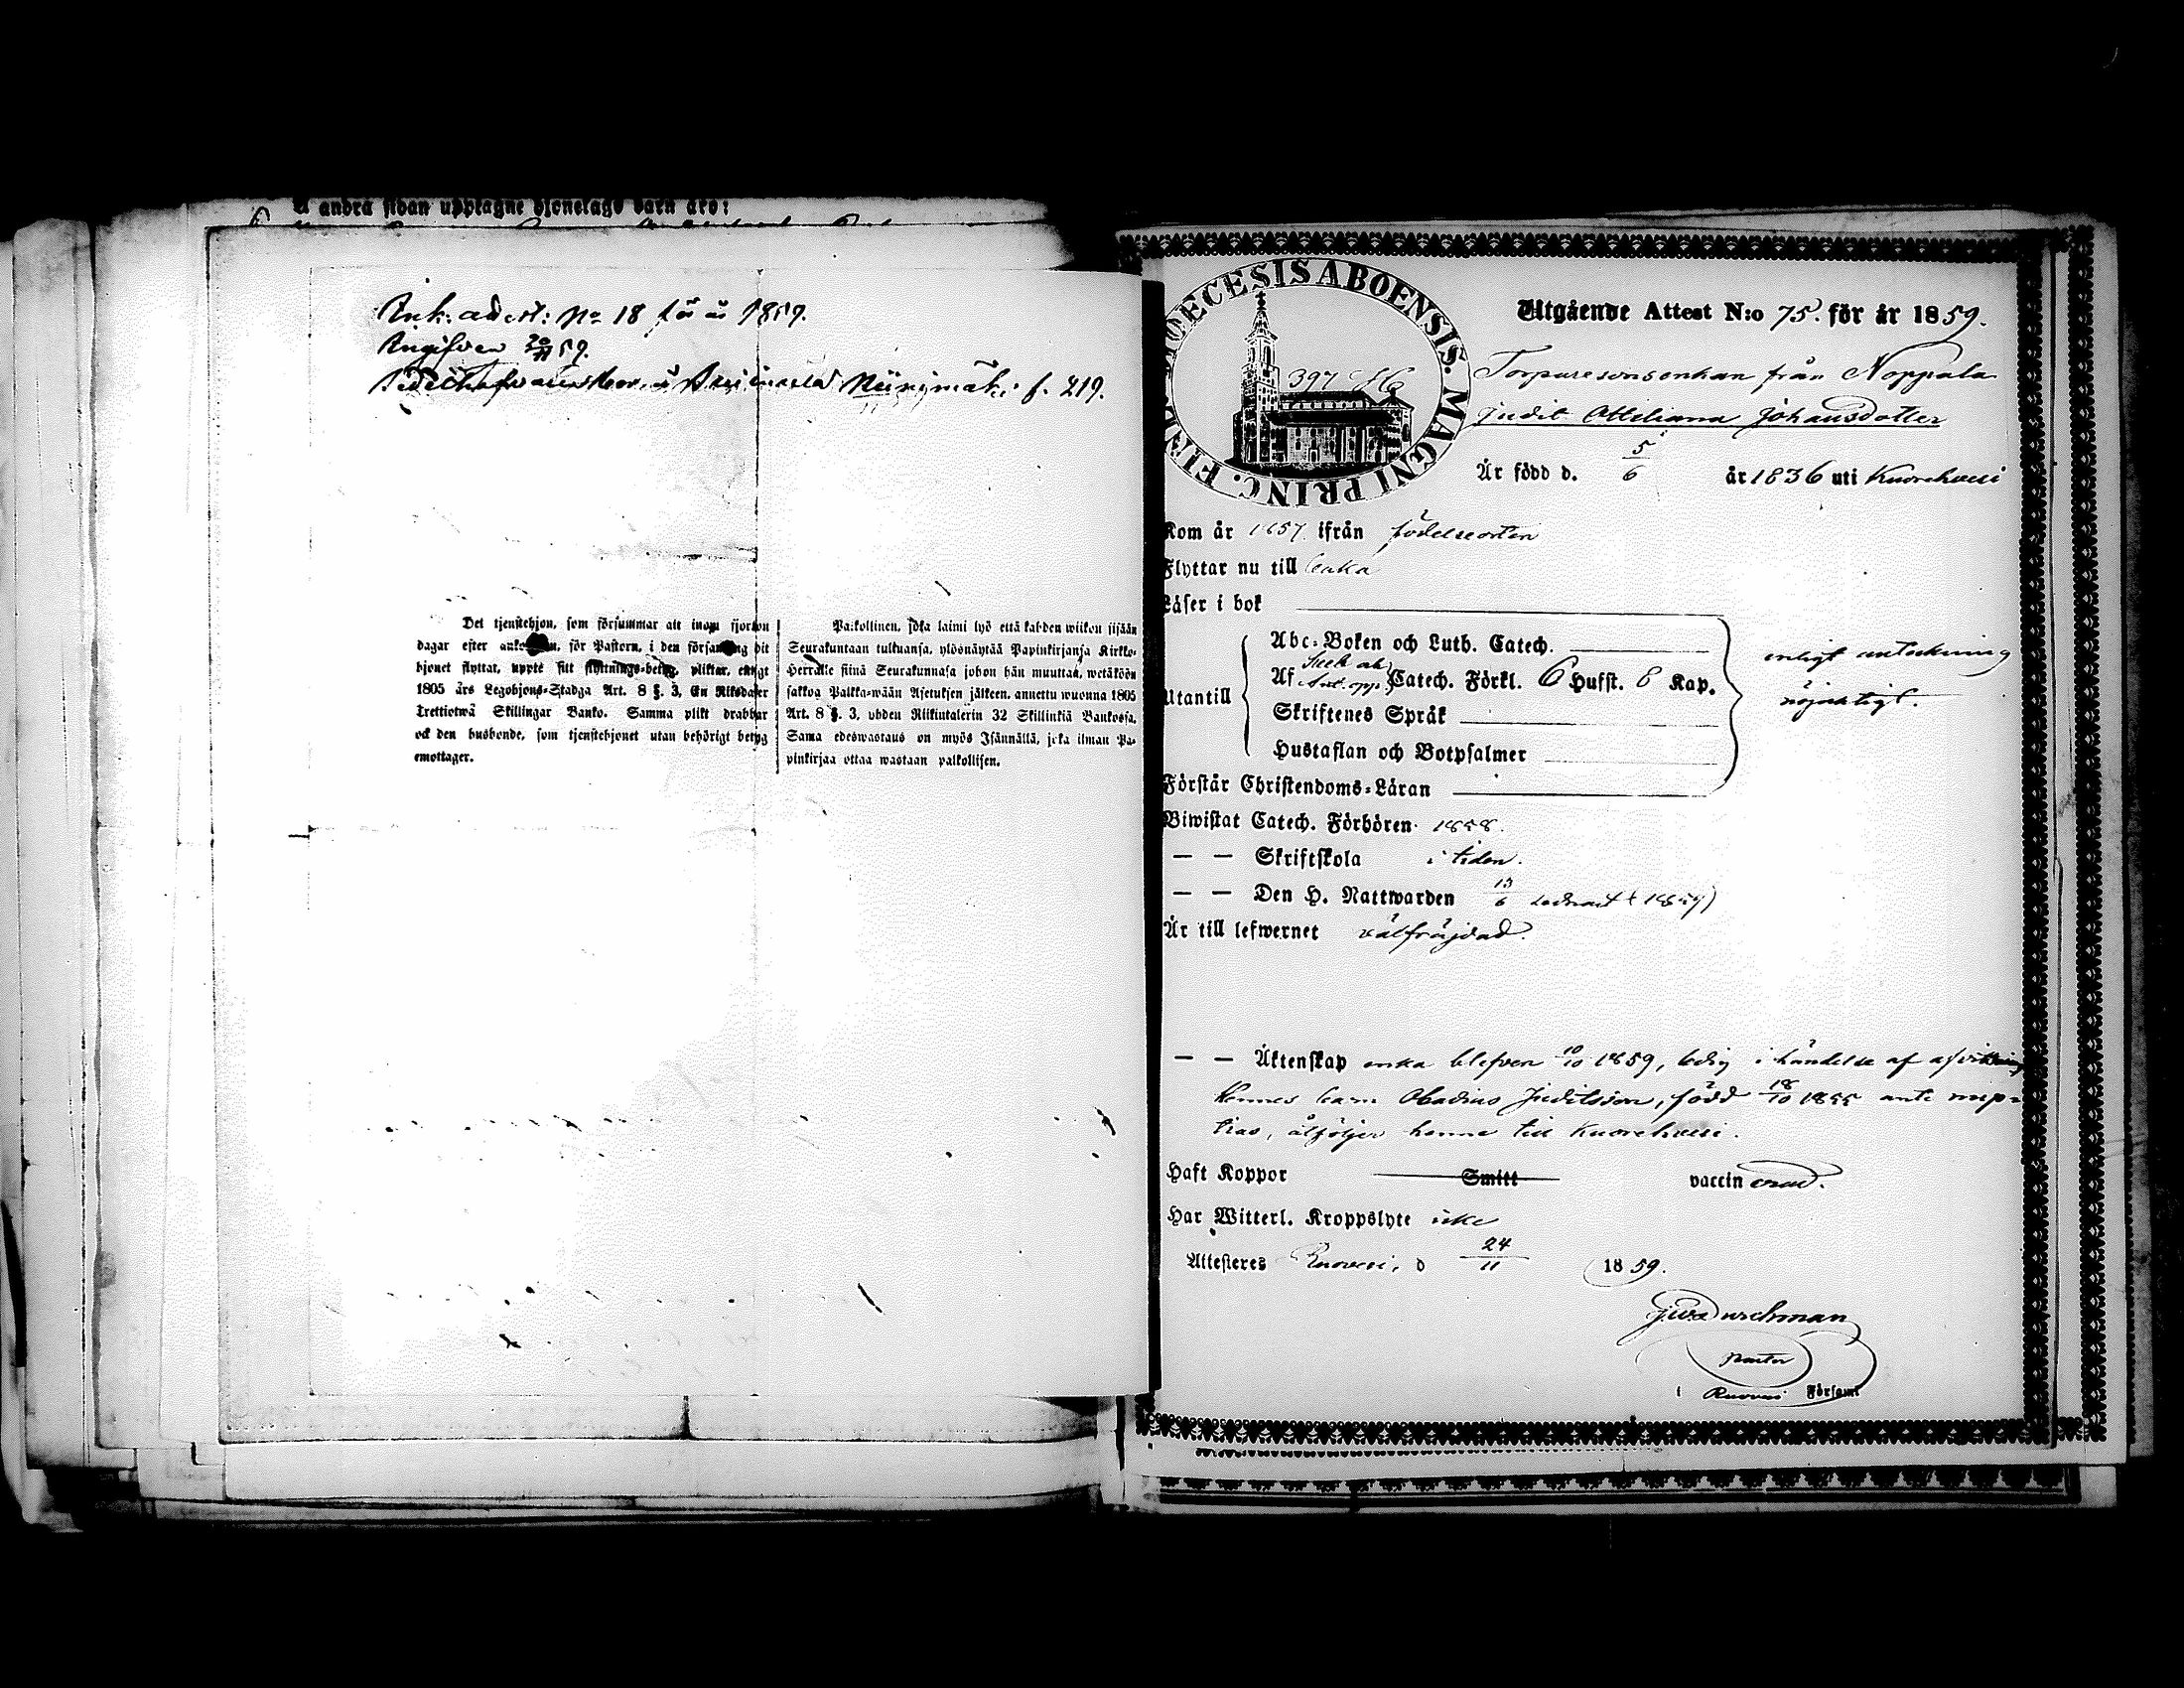 å andra sidan upptagne hjonelags barn äro:
Ink. attest: No 18 för år 1859.
Ingifven 59.
Niinimäki f. 219.
Det tjenstehjon, som försummar att inom fjorton
dagar efter ankomsten, för Pastorn, i den församling dit
hjonet flyttat, uppte sitt flyttnings-betyg, pliktar, enligt
1805 års Legohjons-Stadga Art. 8 §. 3, En Riksdaler
Trettiotwå Skillingar Banko. Samma plikt drabbar
ock den husbonde, som tjenstehjonet utan behörigt betyg
emottager.
Palkollinen, joka laimi lyö että kahden wiikon sisään
Seurakuntaan tultuansa, ylösnäytää Papinkirjansa Kirkko-
Herralle siinä Seurakunnasa johon hän muuttaa, wetäköön
sakkoa Palkka-wään Asetuksen jälkeen, annettu wuonna 1805
Art. 8 §. 3, yhden Riikintalerin 32 Skillinkiä Bankossa.
Sama edeswastaus on myös Isännällä, joka ilman Pa-
pinkirjaa ottaa wastaan palkollisen.
DIOECESIS ABOENSIS. MAGNI PRINC. FINL.
397
Utgående Attest N:o 75. för år 1859.
Torparesonsenkan från Noppala
Judit Johansdotter
Är född d. 5/6 år 1836 uti Kuorehvesi
Kom år 1857 ifrån födelseorten
Flyttar nu till
Läser i bok
Abc-Boken och Luth. Catech.
enligt anteckning
Utantill
Af Catech. Förkl. 6 Hufst. 8 Kap.
nöjaktigt.
Skriftenes Språk
Hustaflan och Botpsalmer
Förstår Christendoms-Läran
Biwistat Catech. Förhören 1858.
— — Skriftskola i tiden.
— — Den H. Nattwarden 6 1859)
Är till lefwernet välfräjdad.
— — Äktenskap enka blefven 10/10 1859, ledig i händelse af
Hennes barn Obadias Juditsson, född 18/10 1855 ante nup-
tias, åtföljer henne till Kuorehvesi.
Haft Koppor Smitt vaccinerad.
Har Witterl. Kroppslyte icke
Attesteres Ruovesi, d 24/11 1859.
Durchman
Pastor
i Ruovesi Församl